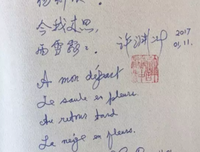 今我来思,
雨雪霏霏.
许渊冲
2017
01.11.
A mon départ
Le saule en pleurs.
Au retour tard
La neige en fleurs.